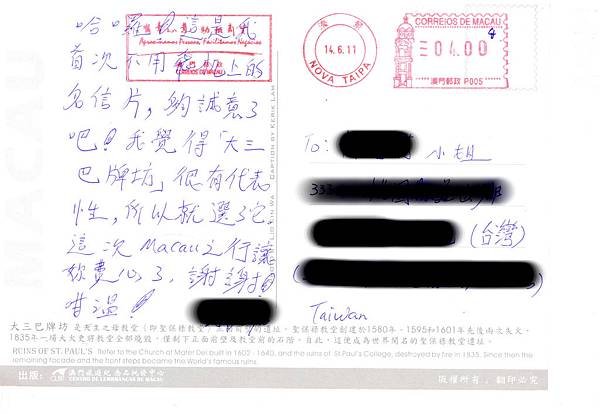 哈囉！這是我
首次不用飛机上的
名信片，夠誠意了
吧！我覺得「大三
巴牌坊」很有代表
性，所以就選了它。
這次 Macau 之行讓
妳費心了，謝謝！
甘溫！
Aproximamos Pessoas, Facilitamos Negócios
14.6.11
NOVA TAIPA
CORREIOS DE MACAU
4
04.00
澳門郵政 P005
To:
小姐
(台灣)
Taiwan
MACAU
CAPTION BY KERIK LAM
大三巴牌坊 是天主之母教堂（即聖保祿教堂）正面前壁的遺址。聖保祿教堂創建於1580年，1595和1601年先後兩次失火，
1835年一場大火更將教堂全部燒毀，僅剩下正面前壁及教堂前的石階。自此，這便成為世界聞名的聖保祿教堂遺址。
RUINS OF ST. PAUL'S Refer to the Church of Mater Dei built in 1602 - 1640, and the ruins of St Paul's College, destroyed by fire in 1835. Since then this
remaining facade and the front steps became the World's famous ruins.
出版: 澳門旅遊紀念品批發中心
CENTRO DE LEMBRANCAS DE MACAU
版權所有，翻印必究